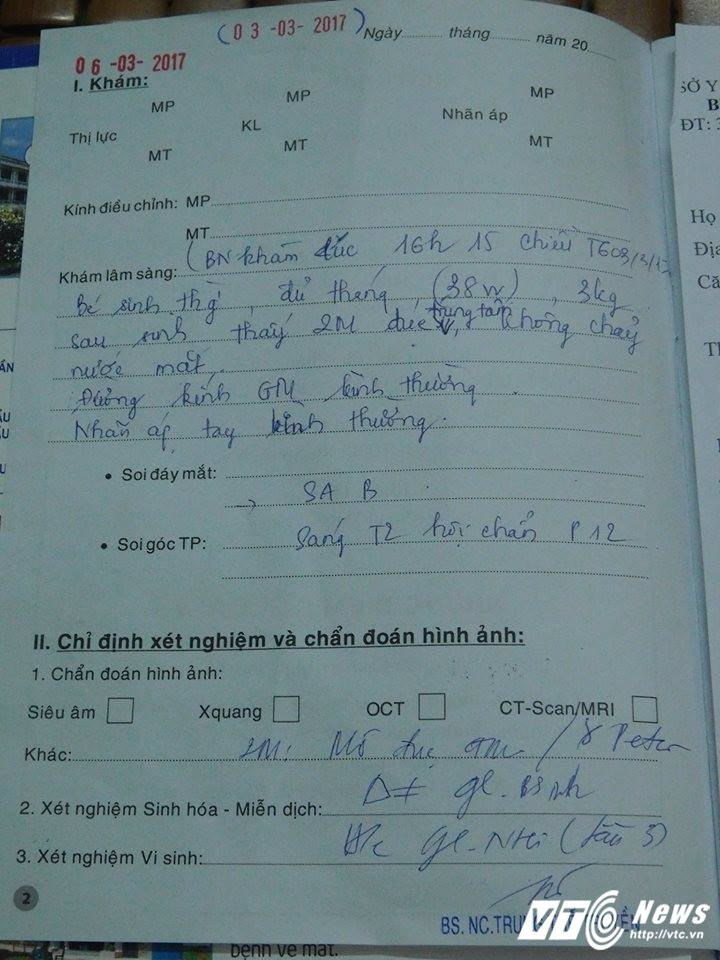 (03-03-2017) Ngày.......... tháng.......... năm 20.....
06-03-2017
I. Khám:
MP MP MP
Thị lực KL Nhãn áp
MT MT MT
Kính điều chỉnh: MP
MT
(BN khám lúc 16h 15 chiều T6 03/3/17
Khám lâm sàng:
Bé sinh thg, đủ tháng, (38W), 3kg
sau sinh thấy 2M đục trung tâm, không chảy
nước mắt,
Đường kính GM bình thường.
Nhãn áp tay bình thường.
• Soi đáy mắt:
→ SA B
• Soi góc TP: Sáng T2 hội chẩn P12
II. Chỉ định xét nghiệm và chẩn đoán hình ảnh:
1. Chẩn đoán hình ảnh:
Siêu âm Xquang OCT CT-Scan/MRI
Khác: 2M: Mờ đục GM / Peter
2. Xét nghiệm Sinh hóa - Miễn dịch: gl. BS
3. Xét nghiệm Vi sinh: Gl. Nhi (lầu 3)
2
BS. NC.TRU
VTC News
http://vtc.vn
bệnh về mắt.
SỞ Y
B
ĐT: 3
Họ
Địa